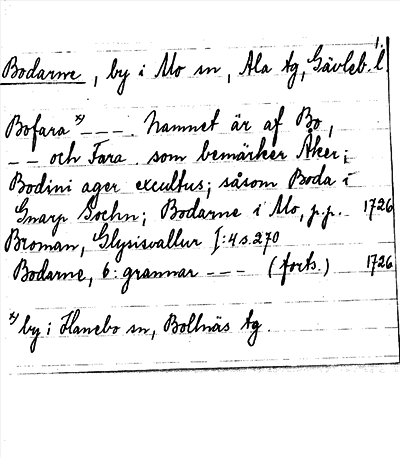 1.
Bodarne, by i Mo sn, Ala tg, Gävleb. l.
Bofara x) --- . Namnet är af Bo,
-- och Fara som bemärker Åker;
Bodini ager excultus; såsom Boda i
Gnarp Sochn; Bodarne i Mo, p.p. 1726
Broman, Glysisvallur I:4 s. 270
Bodarne, 6: grannar --- (forts.) 1726
x) by i Hanebo sn, Bollnäs tg.